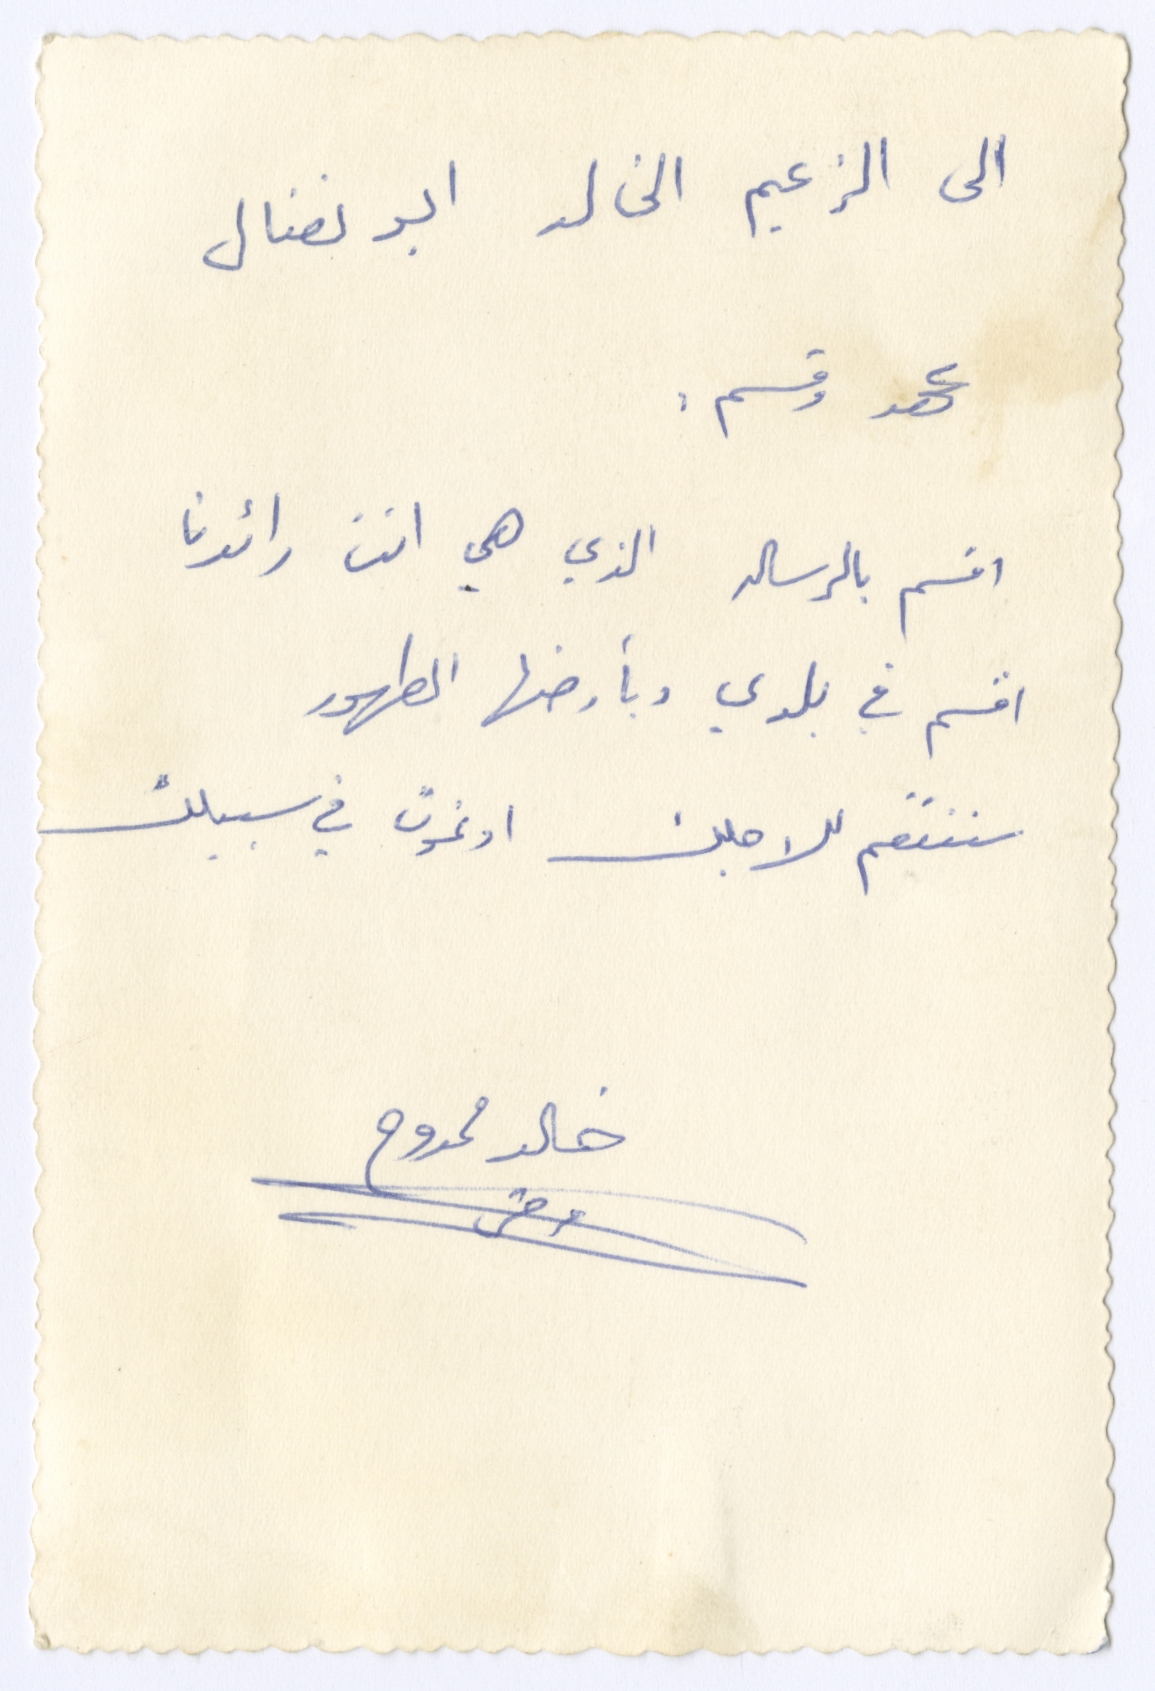 الى الزعيم الخالد ابو نضال
عهد وقسم :
اقسم بالرساله الذي هي انت رائدنا
اقسم في بلدي وبأرضها الطهور
سننتقم للاجلك او نموت في سبيلك
خالد ممدوح